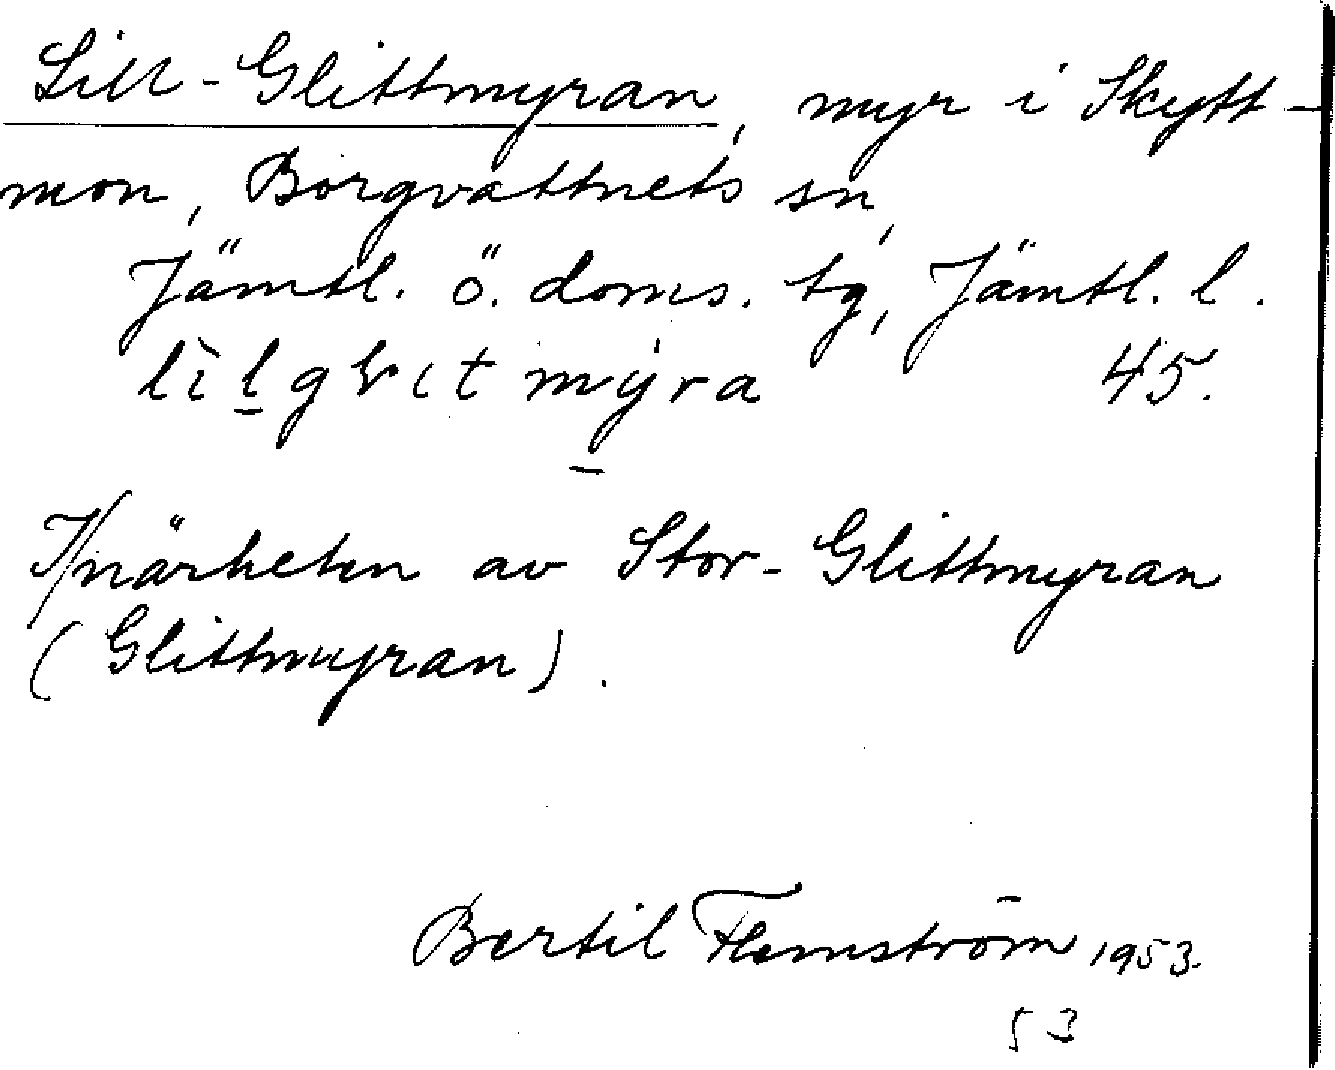 Lill-Glittmyran, myr i Skytt-
mon, Borgvattnets sn,
Jämtl. ö. doms. tg, Jämtl. l.
45.
I/närheten av Stor-Glittmyran
(Glittmyran).
Bertil Flemström 1953.
53